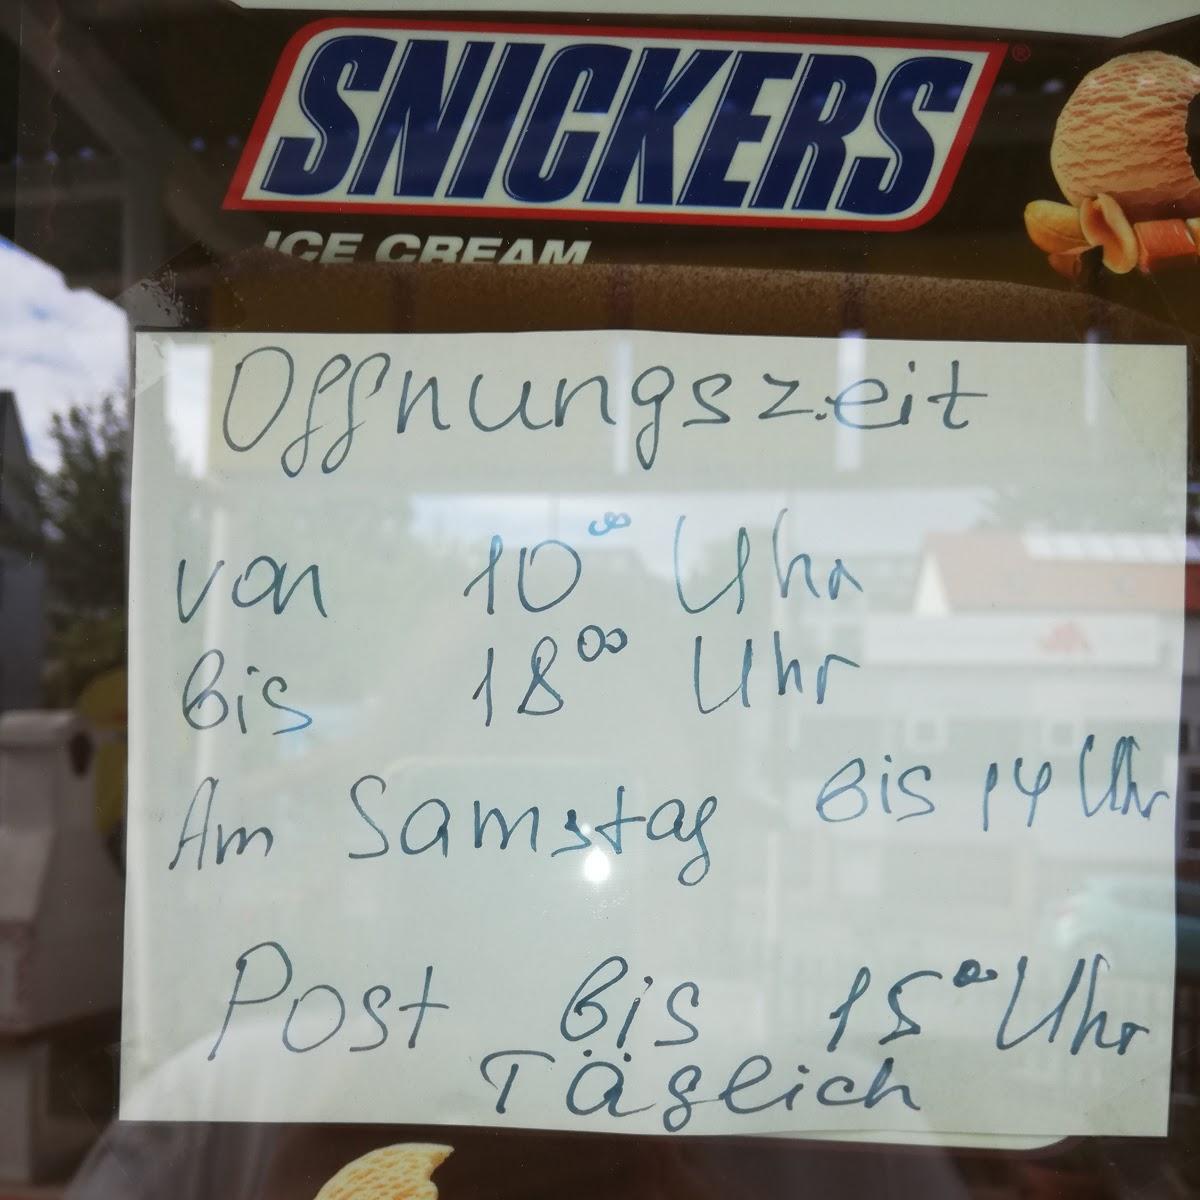 SNICKERS®
ICE CREAM
Offnungszeit
von 10⁰⁰ Uhr
bis 18⁰⁰ Uhr
Am Samstag bis 14 Uhr
Post bis 15⁰⁰ Uhr
Täglich